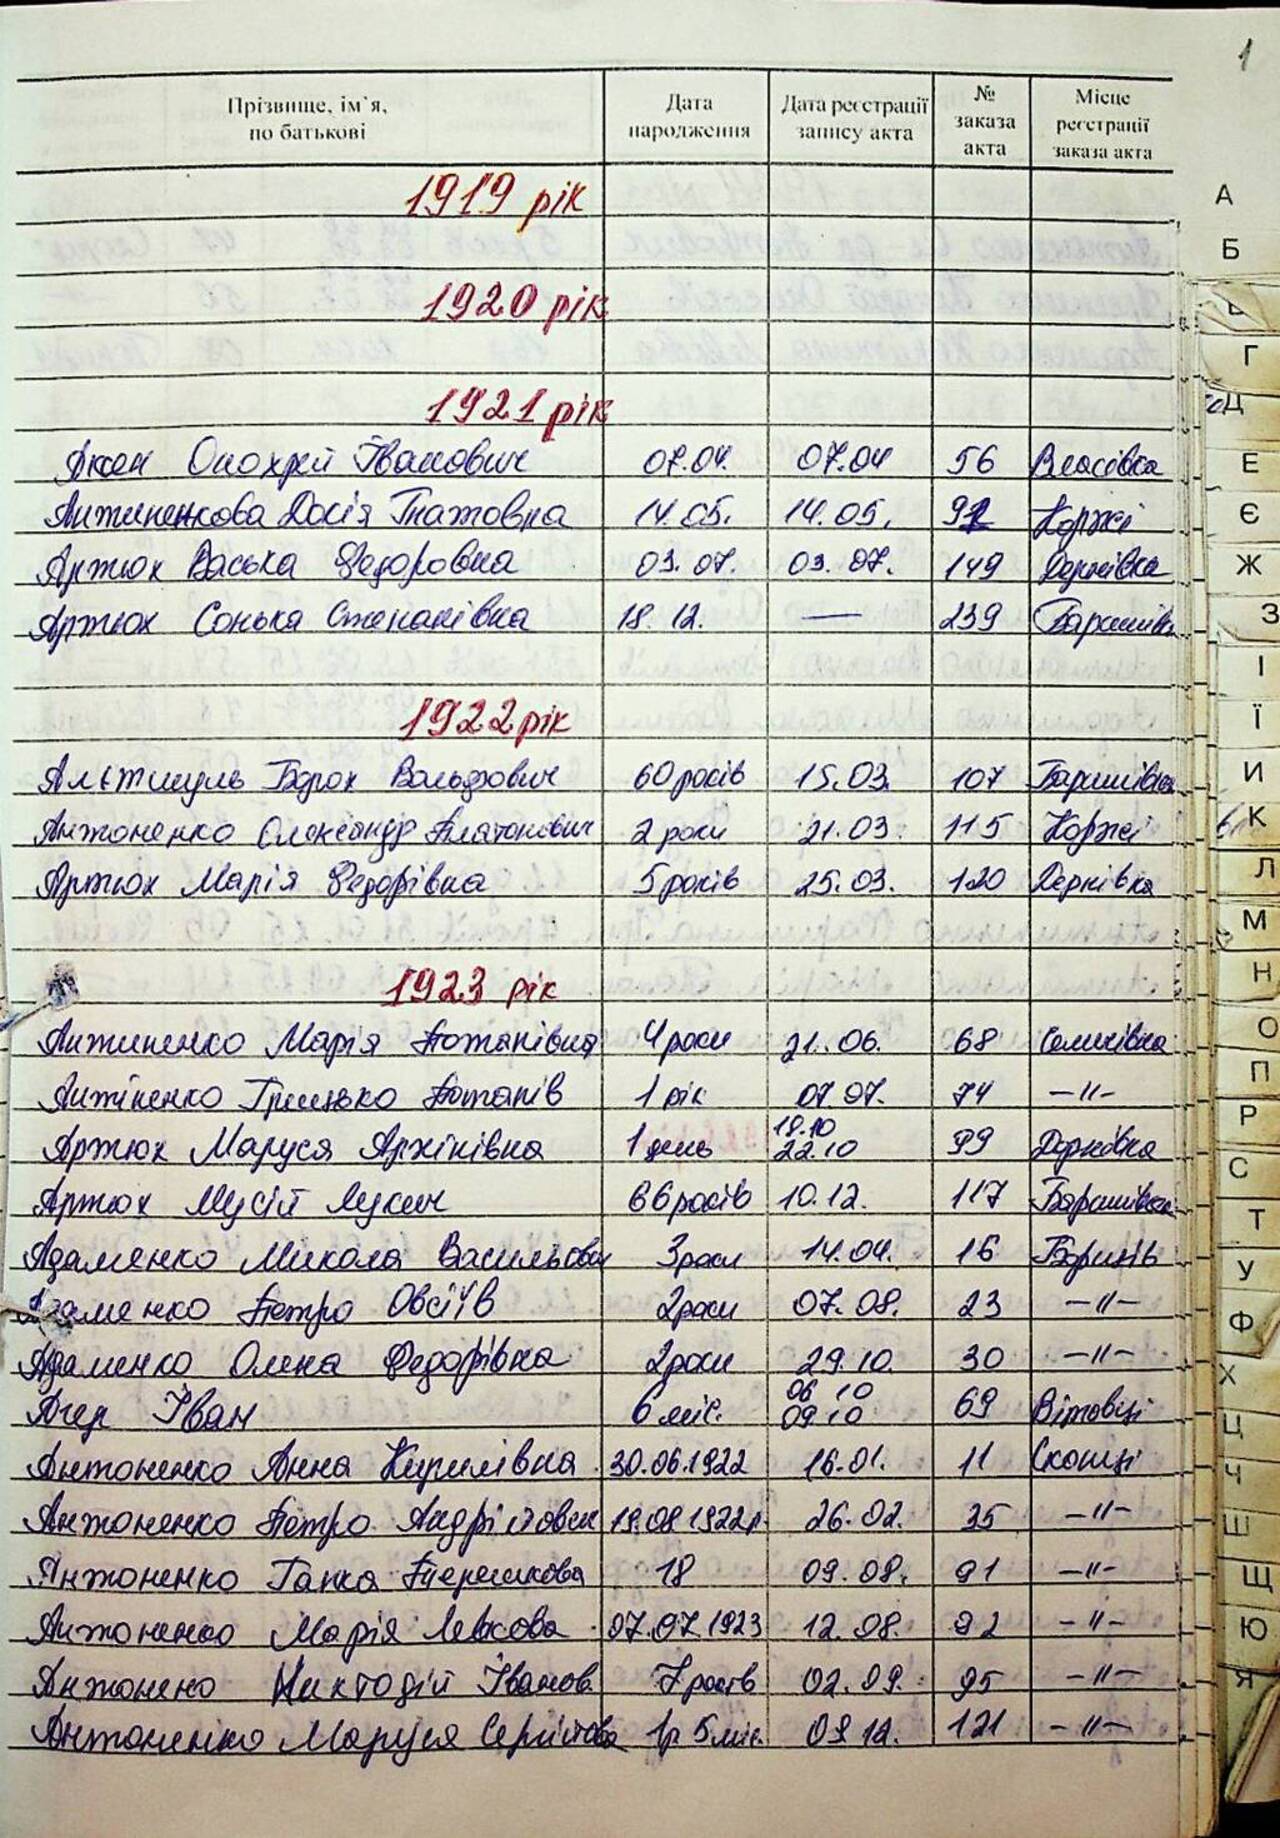 1
Прізвище, ім`я,
по батькові
Дата
народження
Дата реєстрації
запису акта
№
заказа
акта
Місце
реєстрації
заказа акта
1919 рік
1920 рік
1921 рік
Іванович 07.04. 07.04 56 Власівка
Антиненкова Досія Гнатовна 14.05. 14.05. Коржі
Артюх Васька Федоровна 03.07. 03.07. 149 Дернівка
Артюх Сонька Степанівна 18.12. — 239 Баришівк
1922 рік
Альтшуль Борох Вольфович 60 років 15.03. 107 Баришівка
Антоненко Олександр Платонович 2 роки 21.03. 115 Коржі
Артюх Марія Федорівна 5 років 25.03. 120 Дернівка
1923 рік
Антиненко Марія Потапівна 4 роки 21.06. 68 Селичівка
Антіненко Грицько Потапів 1 рік 07.07. 74 -"-
Артюх Маруся Архипівна 1 день 18.10
22.10 99 Дернівка
Артюх Мусій Лукич 66 років 10.12. 117 Баришівка
Адаменко Микола Васильович 3 роки 14.04. 16 Борщів
Адаменко Петро Овсіїв 2 роки 07.08. 23 -"-
Адаменко Олена Федорівна 2 роки 29.10. 30 -"-
Агер Іван 6 міс. 06 10
09.10 69 Вітовці
Антоненко Анна Кирилівна 30.06.1922 16.01. 11 Скопці
Антоненко Петро Андрійович 19.08 1922р. 26.02. 35 -"-
Антоненко Ганка 18 09.08. 91 -"-
Антоненко Марія Левкова 07.07.1923 12.08. 92 -"-
Антонено Іванов. 7 років 02.09. 95 -"-
Антоненко Маруся Сергійова 1р 5 міс. 09.12. 121 -"-
А
Б
Г
Д
Е
Є
Ж
З
І
Ї
И
К
Л
М
Н
О
П
Р
С
Т
У
Ф
Х
Ц
Ч
Ш
Щ
Ю
Я